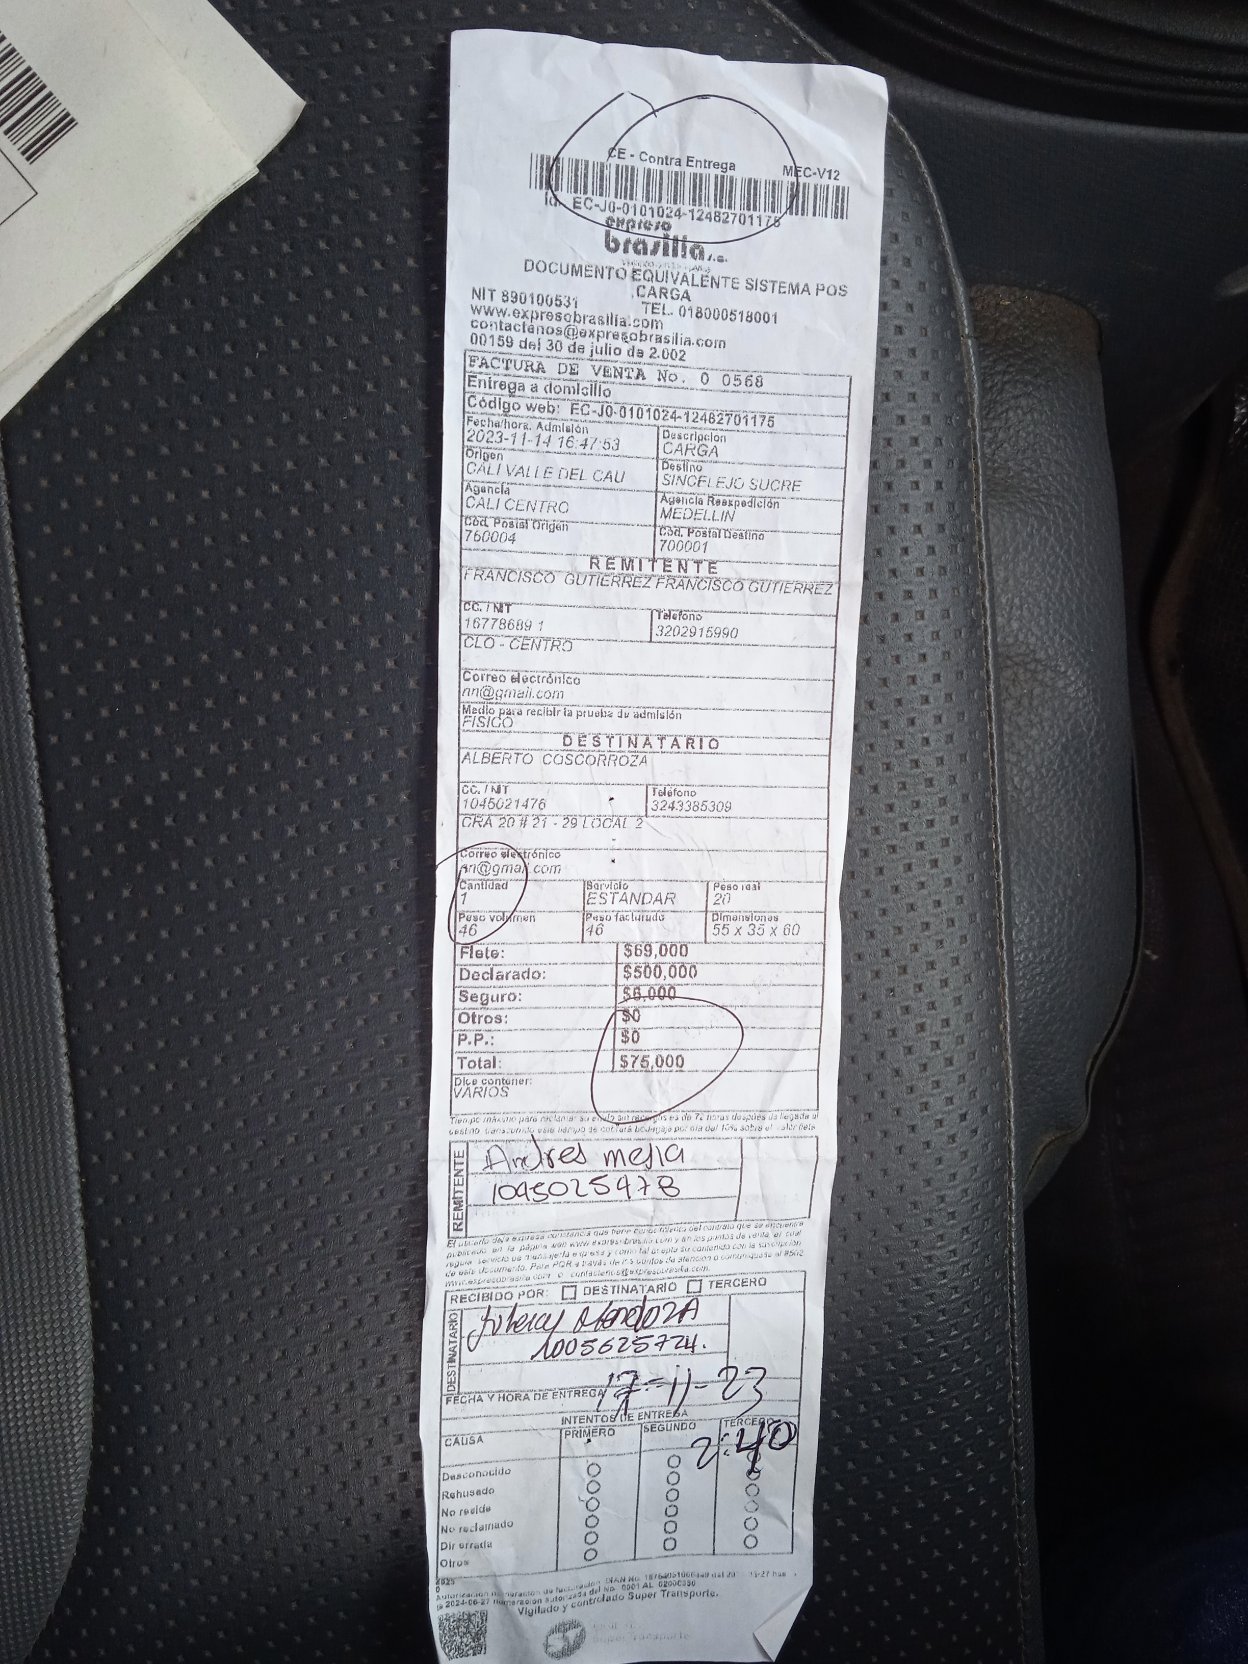 CE - Contra Entrega MEC-V12
Id. EC-J0-0101024-12482701175
expreso
brasilia s.a.
DOCUMENTO EQUIVALENTE SISTEMA POS
CARGA
NIT 890100531 TEL. 018000518001
www.expresobrasilia.com
contactenos@expresobrasilia.com
00159 del 30 de julio de 2.002
FACTURA DE VENTA No. 0 0568
Entrega a domicilio
Código web: EC-J0-0101024-12482701175
Fecha/hora. Admisión Descripcion
2023-11-14 16:47:53 CARGA
Origen Destino
CALI VALLE DEL CAU SINCELEJO SUCRE
Agencia Agencia Reexpedición
CALI CENTRO MEDELLIN
Cód. Postal Origen Cód. Postal Destino
760004 700001
REMITENTE
FRANCISCO GUTIERREZ FRANCISCO GUTIERREZ
CC. / NIT Telefono
16778689 1 3202915990
CLO - CENTRO
Correo electrónico
nn@gmail.com
Medio para recibir la prueba de admisión
FISICO
DESTINATARIO
ALBERTO COSCORROZA
CC. / NIT Teléfono
1045021476 3243385309
CRA 20 # 21 - 29 LOCAL 2
Correo electrónico
nn@gmail.com
Cantidad Servicio Peso real
1 ESTANDAR 20
Peso volumen Peso facturado Dimensiones
46 46 55 x 35 x 60
Flete: $69,000
Declarado: $500,000
Seguro: $6,000
Otros: $0
P.P.: $0
Total: $75,000
Dice contener:
VARIOS
Tiempo máximo para reclamar su envío sin recargos es de 72 horas después de llegada al
destino, transcurrido este tiempo se cobrará bodegaje por día del 10% sobre el valor flete
REMITENTE
Andres mejia
1045025978
RECIBIDO POR: DESTINATARIO TERCERO
DESTINATARIO
Mendoza
1005625724.
FECHA Y HORA DE ENTREGA 17-11-23
INTENTOS DE ENTREGA
CAUSA PRIMERO SEGUNDO TERCERO
2:40
Desconocido
Rehusado
No reside
No reclamado
Dir errada
Otros
Vigilado y controlado Super Transporte.